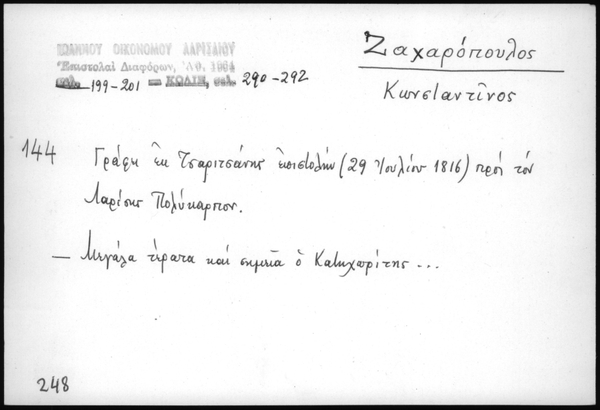 ΙΩΑΝΝΟΥ ΟΙΚΟΝΟΜΟΥ ΛΑΡΙΣΑΙΟΥ
Ἐπιστολαὶ Διαφόρων, Ἀθ. 1964
σελ. 199-201 — ΚΩΔΙΞ, σελ. 290-292
Ζαχαρόπουλος
Κωνσταντῖνος
144 Γράφει ἐκ Τσαριτσάνης ἐπιστολὴν (29 Ἰουλίου 1816) πρὸς τὸν
Λαρίσης Πολύκαρπον.
— Μεγάλα τέρατα καὶ σημεῖα ὁ Κατηχωρίτης ...
248